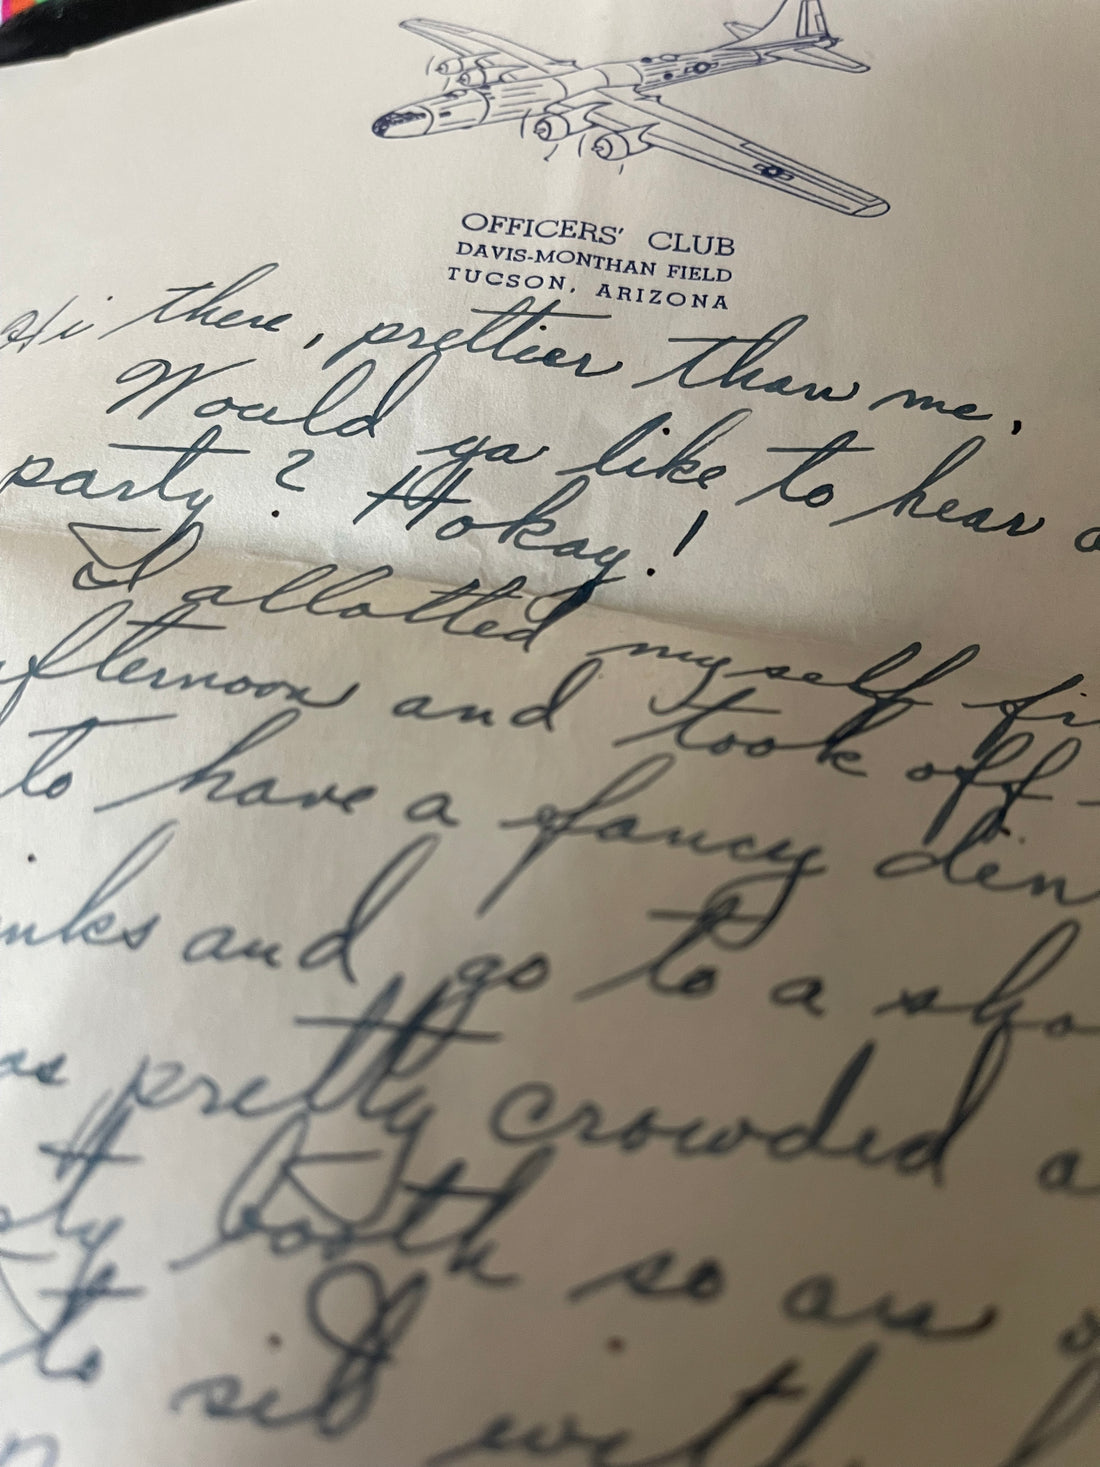 OFFICERS' CLUB
DAVIS-MONTHAN FIELD
TUCSON, ARIZONA
Hi there, prettier than me,
Would ya like to hear a
party? Hokay!
I allotted myself
afternoon and took off
to have a fancy din
nks and go to a sho
as pretty crowded a
sty booth so an
to sit with